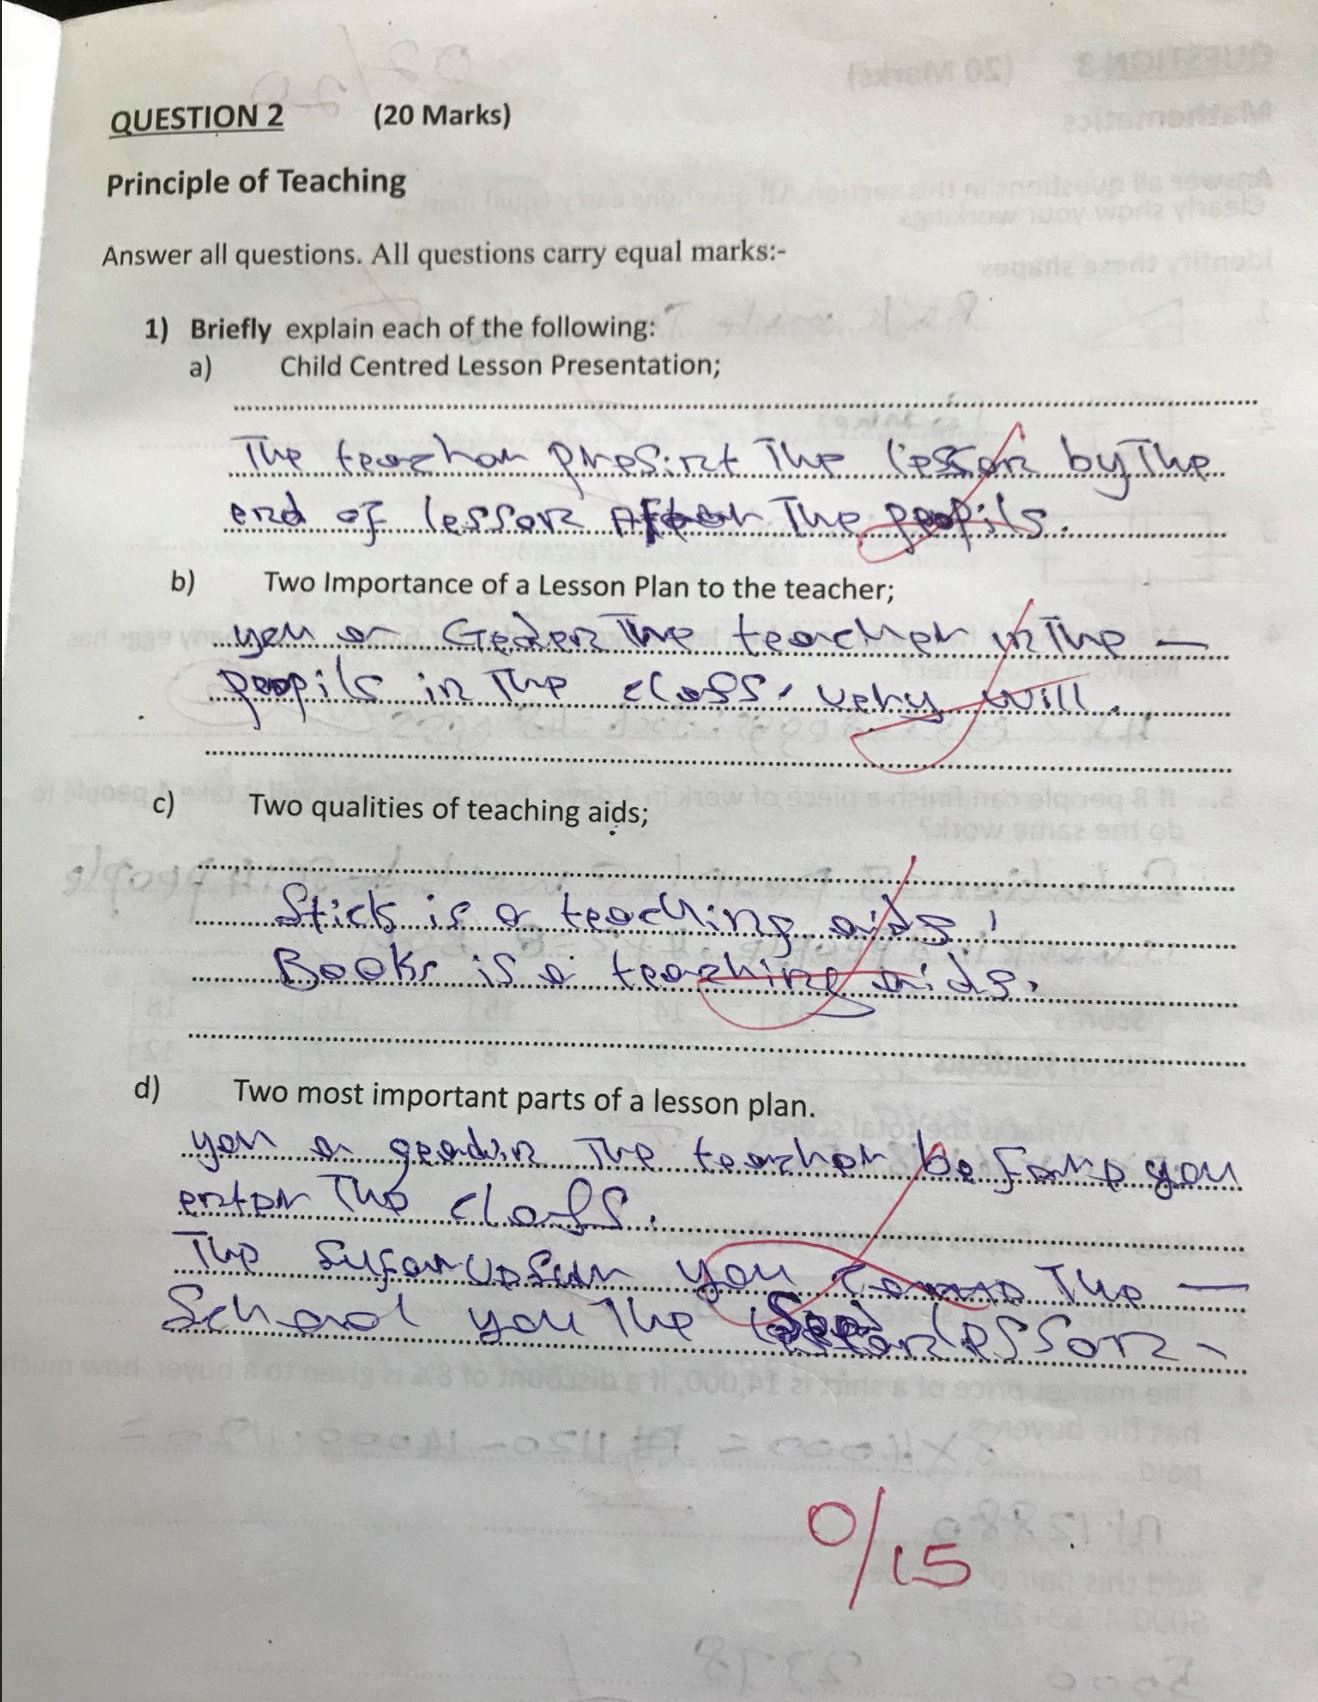 QUESTION 2 (20 Marks)
Principle of Teaching
Answer all questions. All questions carry equal marks:-
1) Briefly explain each of the following:
a) Child Centred Lesson Presentation;
The teacher presint The lesson by The
end of lesson After The peopils.
b) Two Importance of a Lesson Plan to the teacher;
The teacher in The —
peopils in The class. very will.
c) Two qualities of teaching aids;
Stick is a teaching aids!
Books is a teaching aids.
d) Two most important parts of a lesson plan.
The teacher you
enter The class.
The you The —
School you The lesson.
0/15